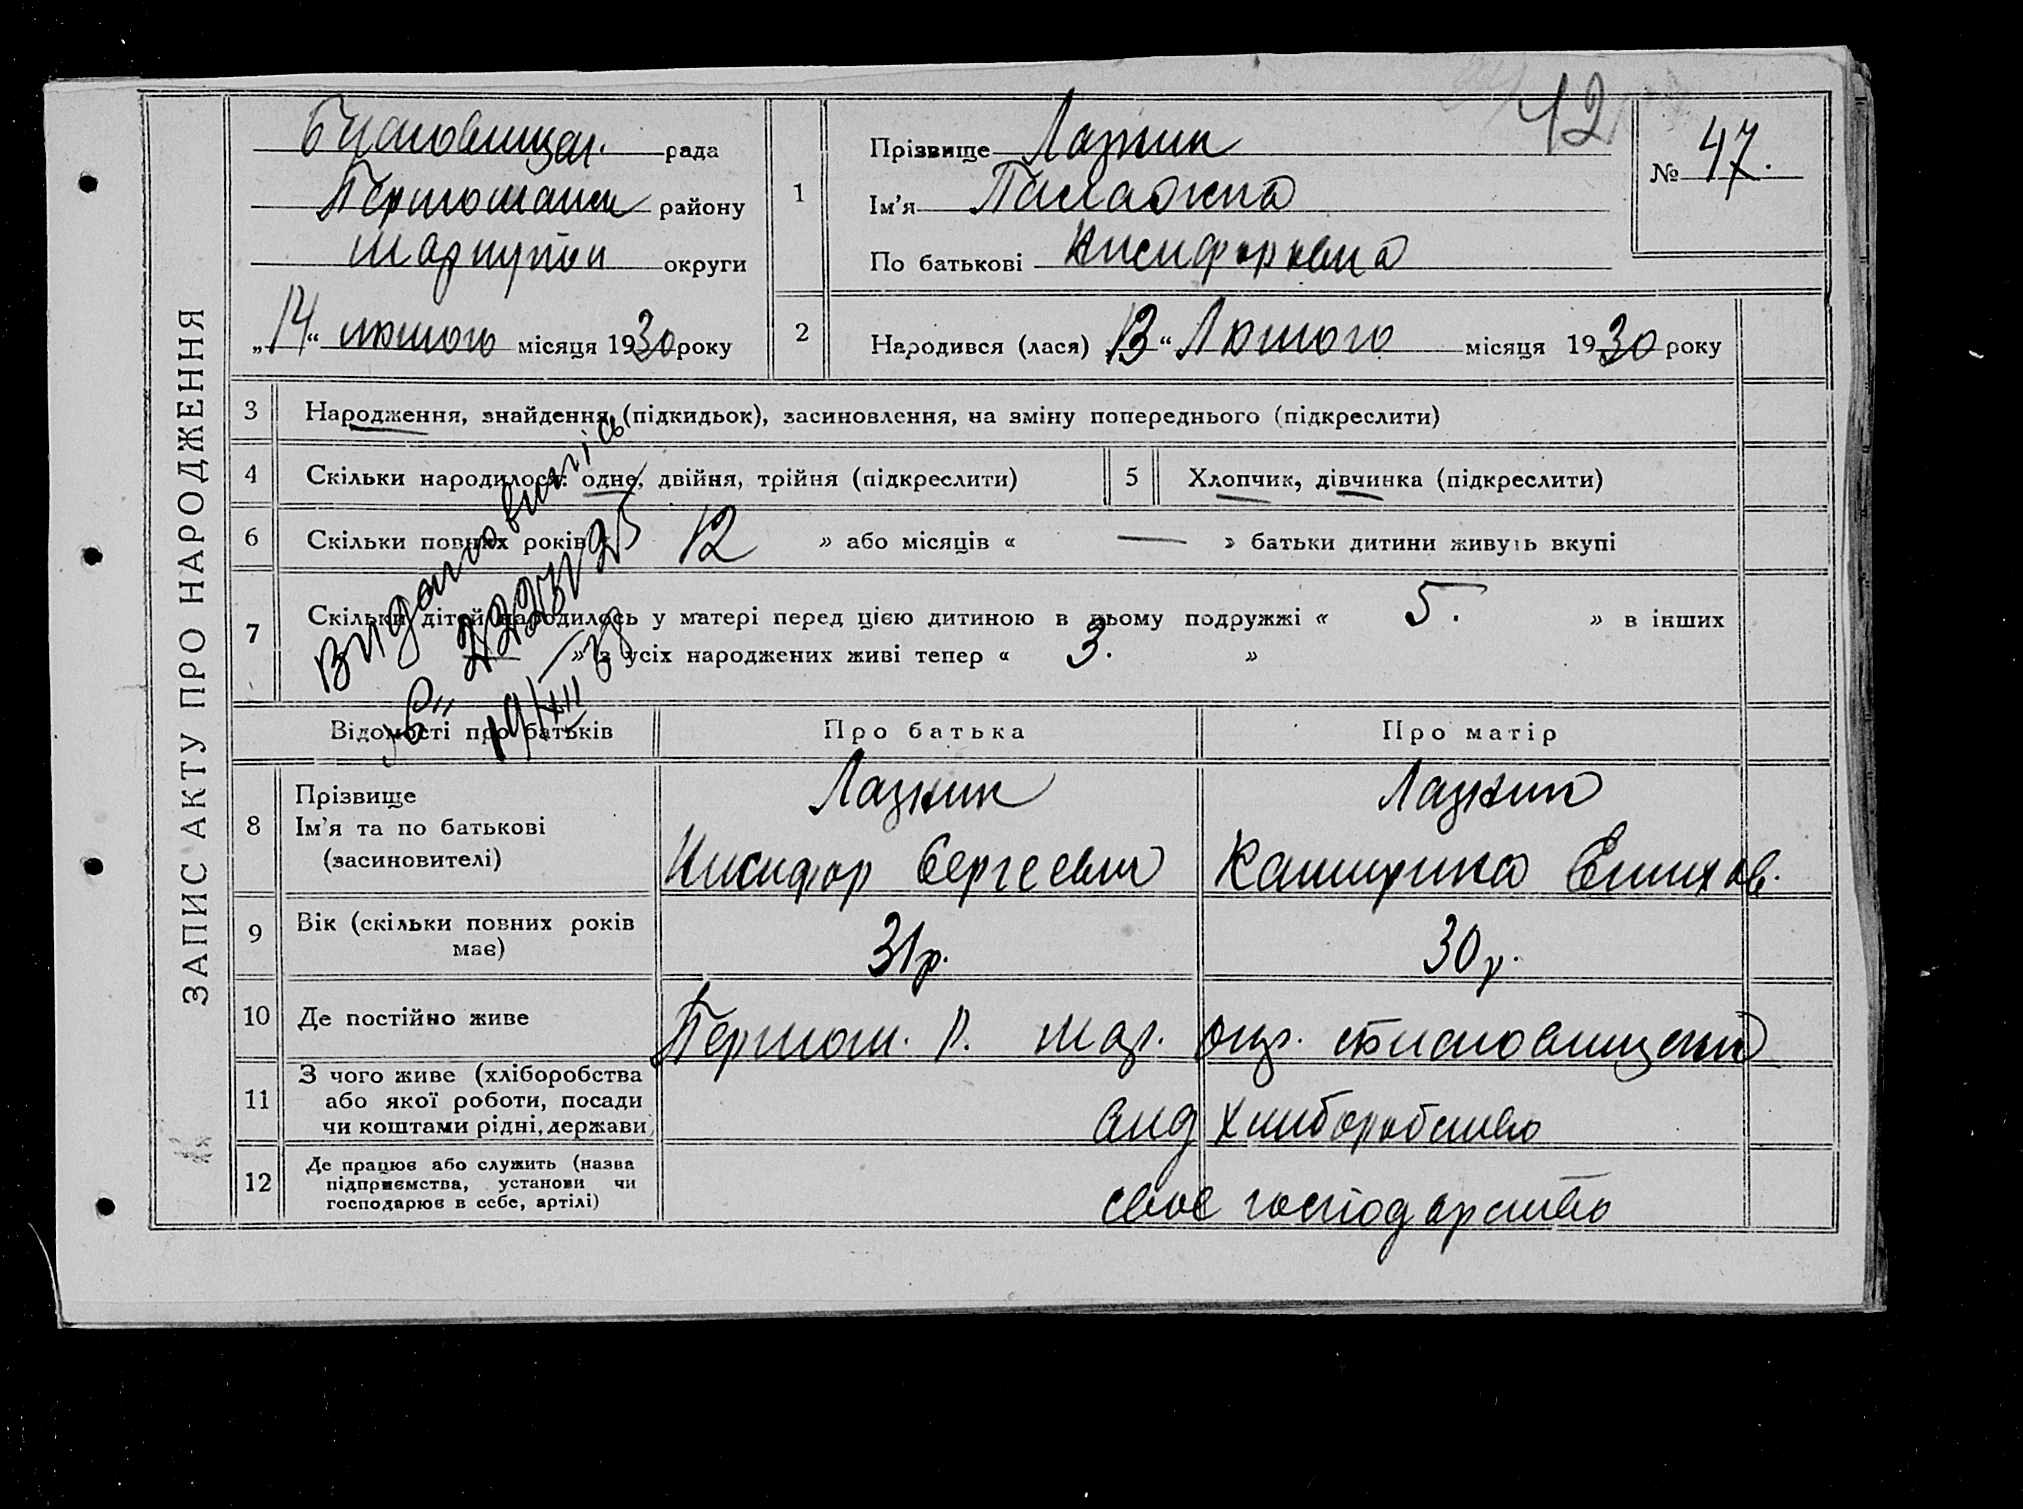 ЗАПИС АКТУ ПРО НАРОДЖЕННЯ
12
рада
району
округи
„14“ лютого місяця 1930 року
1
Прізвище Лазник
Ім'я
По батькові Никифоровна
№ 47.
2
Народився (лася) 13 “ Лютого місяця 1930 року
3
Народження, знайдення (підкидьок), засиновлення, на зміну попереднього (підкреслити)
4
Скільки народилося: одне, двійня, трійня (підкреслити)
5
Хлопчик, дівчинка (підкреслити)
6
Скільки повних років 12 » або місяців « — » батьки дитини живуть вкупі
7
Скільки дітей народилось у матері перед цією дитиною в цьому подружжі « 5. » в інших
» з усіх народжених живі тепер « 3. »
Відомості про батьків
Про батька
Про матір
8
Прізвище
Ім'я та по батькові
(засиновителі)
Лазник
Никифор Сергеевич
Лазник
9
Вік (скільки повних років має)
31р.
30р.
10
Де постійно живе
11
З чого живе (хліборобства
або якої роботи, посади
чи коштами рідні, держави)
від хліборобство
12
Де працює або служить (назва
підприємства, установи чи
господарює в себе, артілі)
своє господарство